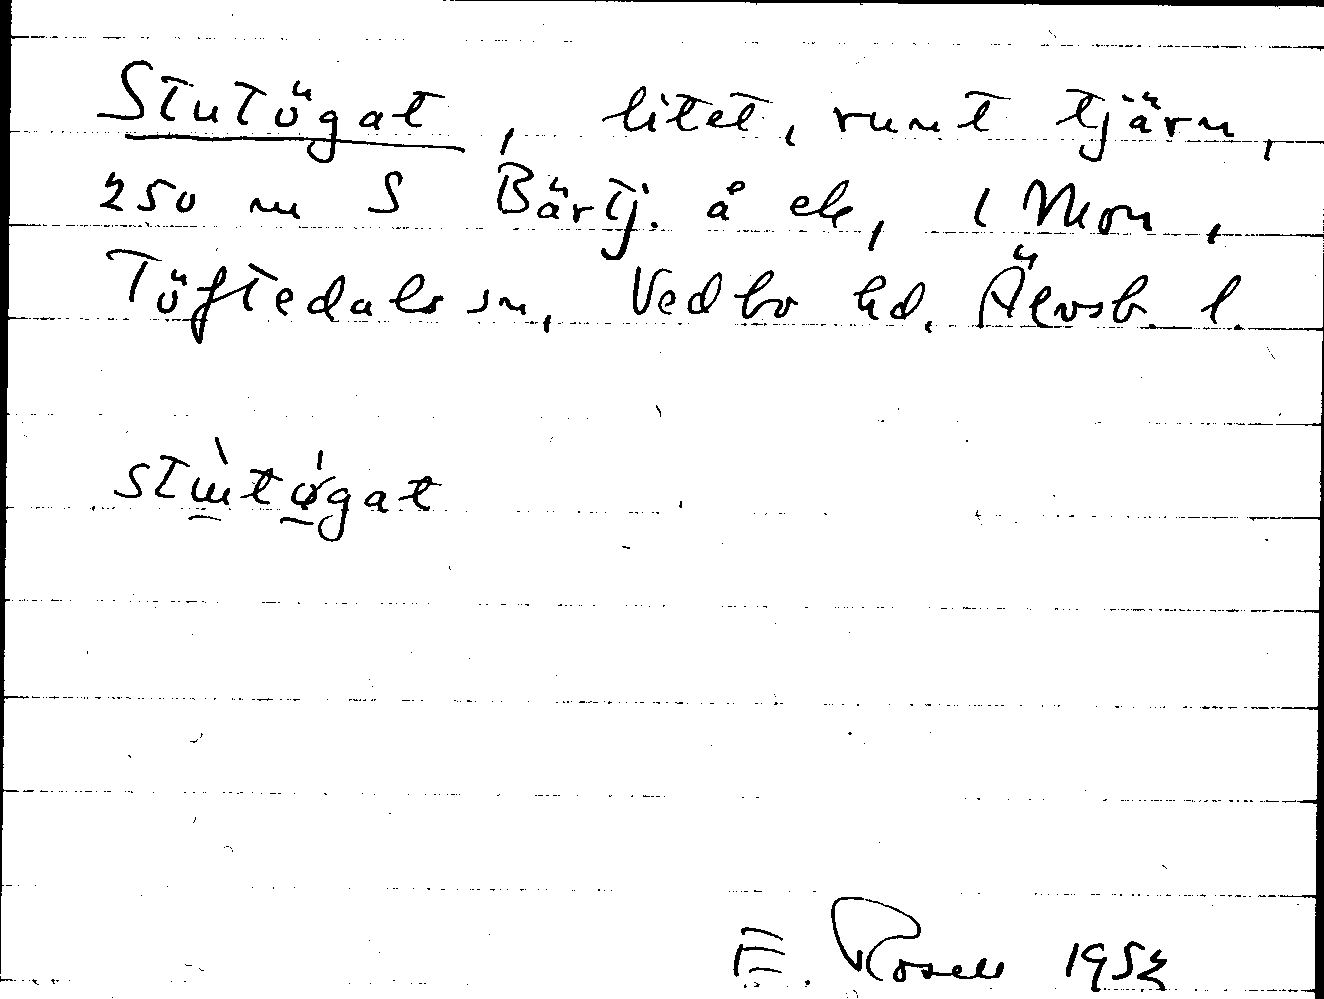 Stutögat, litet, runt tjärn,
250 m S Bärtj. å ek, i Mon,
Töftedals sn, Vedbo hd. Älvsb. l.
stɯ̀tǿgat
E. Rosell 1952